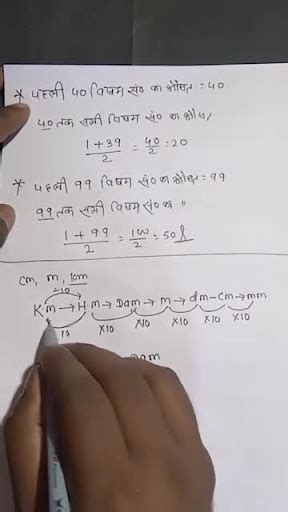 * पहली 40 विषम सं० का औसत = 40
40 तक सभी विषम सं० का औ०
1 + 39 / 2 = 40 / 2 = 20
* पहली 99 विषम सं० का औसत = 99
99 तक सभी विषम सं० का "
1 + 99 / 2 = 100 / 2 = 50
cm, m, km
÷10
Km → Hm → Dam → m → dm – Cm → mm
10 X10 X10 X10 X10 X10
am